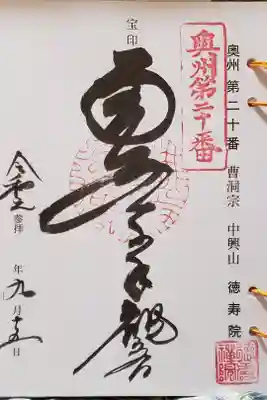 奥州 第二十番 曹洞宗 中興山 徳寿院
奥州第二十番
宝印
南無千手観音
参拝
年九月十五日